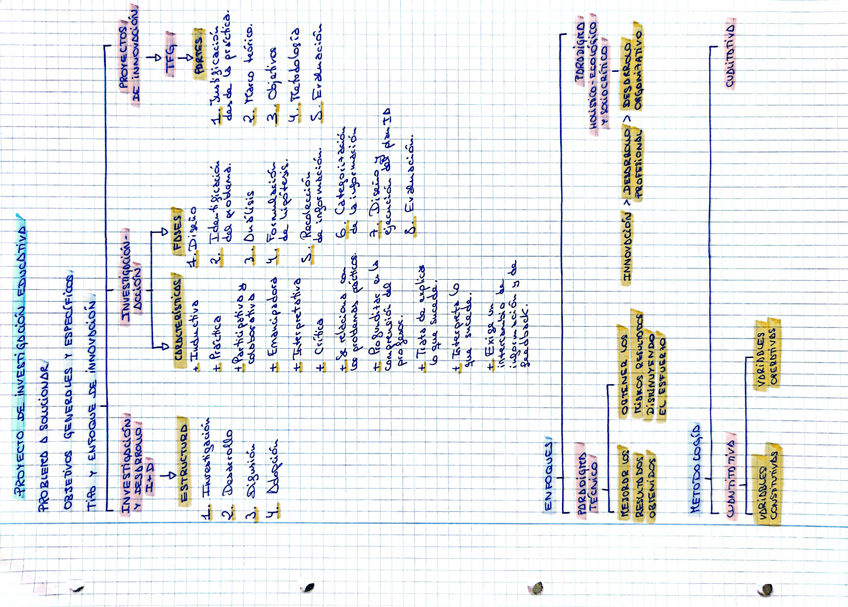 PROYECTO DE INVESTIGACIÓN EDUCATIVA
PROBLEMA A SOLUCIONAR
OBJETIVOS GENERALES Y ESPECÍFICOS.
TIPO Y ENFOQUE DE INNOVACIÓN.
INVESTIGACIÓN
Y DESARROLLO
I+D
ESTRUCTURA
1. Investigación
2. Desarrollo
3. Difusión
4. Adopción
INVESTIGACIÓN-
ACCIÓN
CARACTERÍSTICAS
+ Inductiva
+ Práctica
+ Participativa y
colaborativa
+ Emancipadora
+ Interpretativa
+ Crítica
+ Se relaciona con
los problemas prácticos.
+ Profundizar en la
comprensión del
profesor.
+ Trata de explicar
lo que sucede.
+ Interpreta lo
que sucede.
+ Exige un
intercambio de
información y de
feedback.
FASES
1. Diseño
2. Identificación
del problema.
3. Análisis
4. Formulación
de hipótesis.
5. Recolección
de información.
6. Categorización
de la información
7. Diseño y
ejecución del plan ID
8. Evaluación.
PROYECTOS
DE INNOVACIÓN
TFG
PARTES
1. Justificación
desde la práctica.
2. Marco teórico.
3. Objetivos
4. Metodología
5. Evaluación
ENFOQUES
PARADIGMA
TÉCNICO
MEJORAR LOS
RESULTADOS
OBTENIDOS
OBTENER LOS
MISMOS RESULTADOS
DISMINUYENDO
EL ESFUERZO
PARADIGMA
HOLÍSTICO-ECOLÓGICO
Y SOCIOCRÍTICO
INNOVACIÓN > DESARROLLO
PROFESIONAL > DESARROLLO
ORGANIZATIVO
METODOLOGÍA
CUANTITATIVA
VARIABLES
CONSTITUTIVAS
VARIABLES
OPERATIVAS
CUALITATIVA